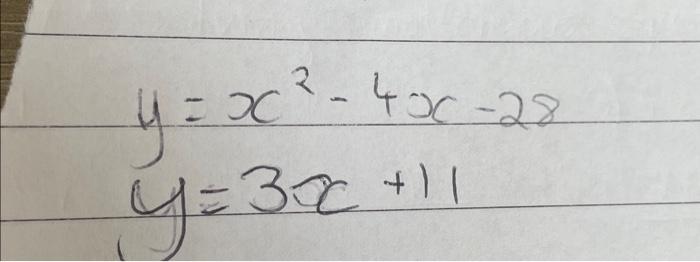 y = x² - 4x - 28
y = 3x + 11